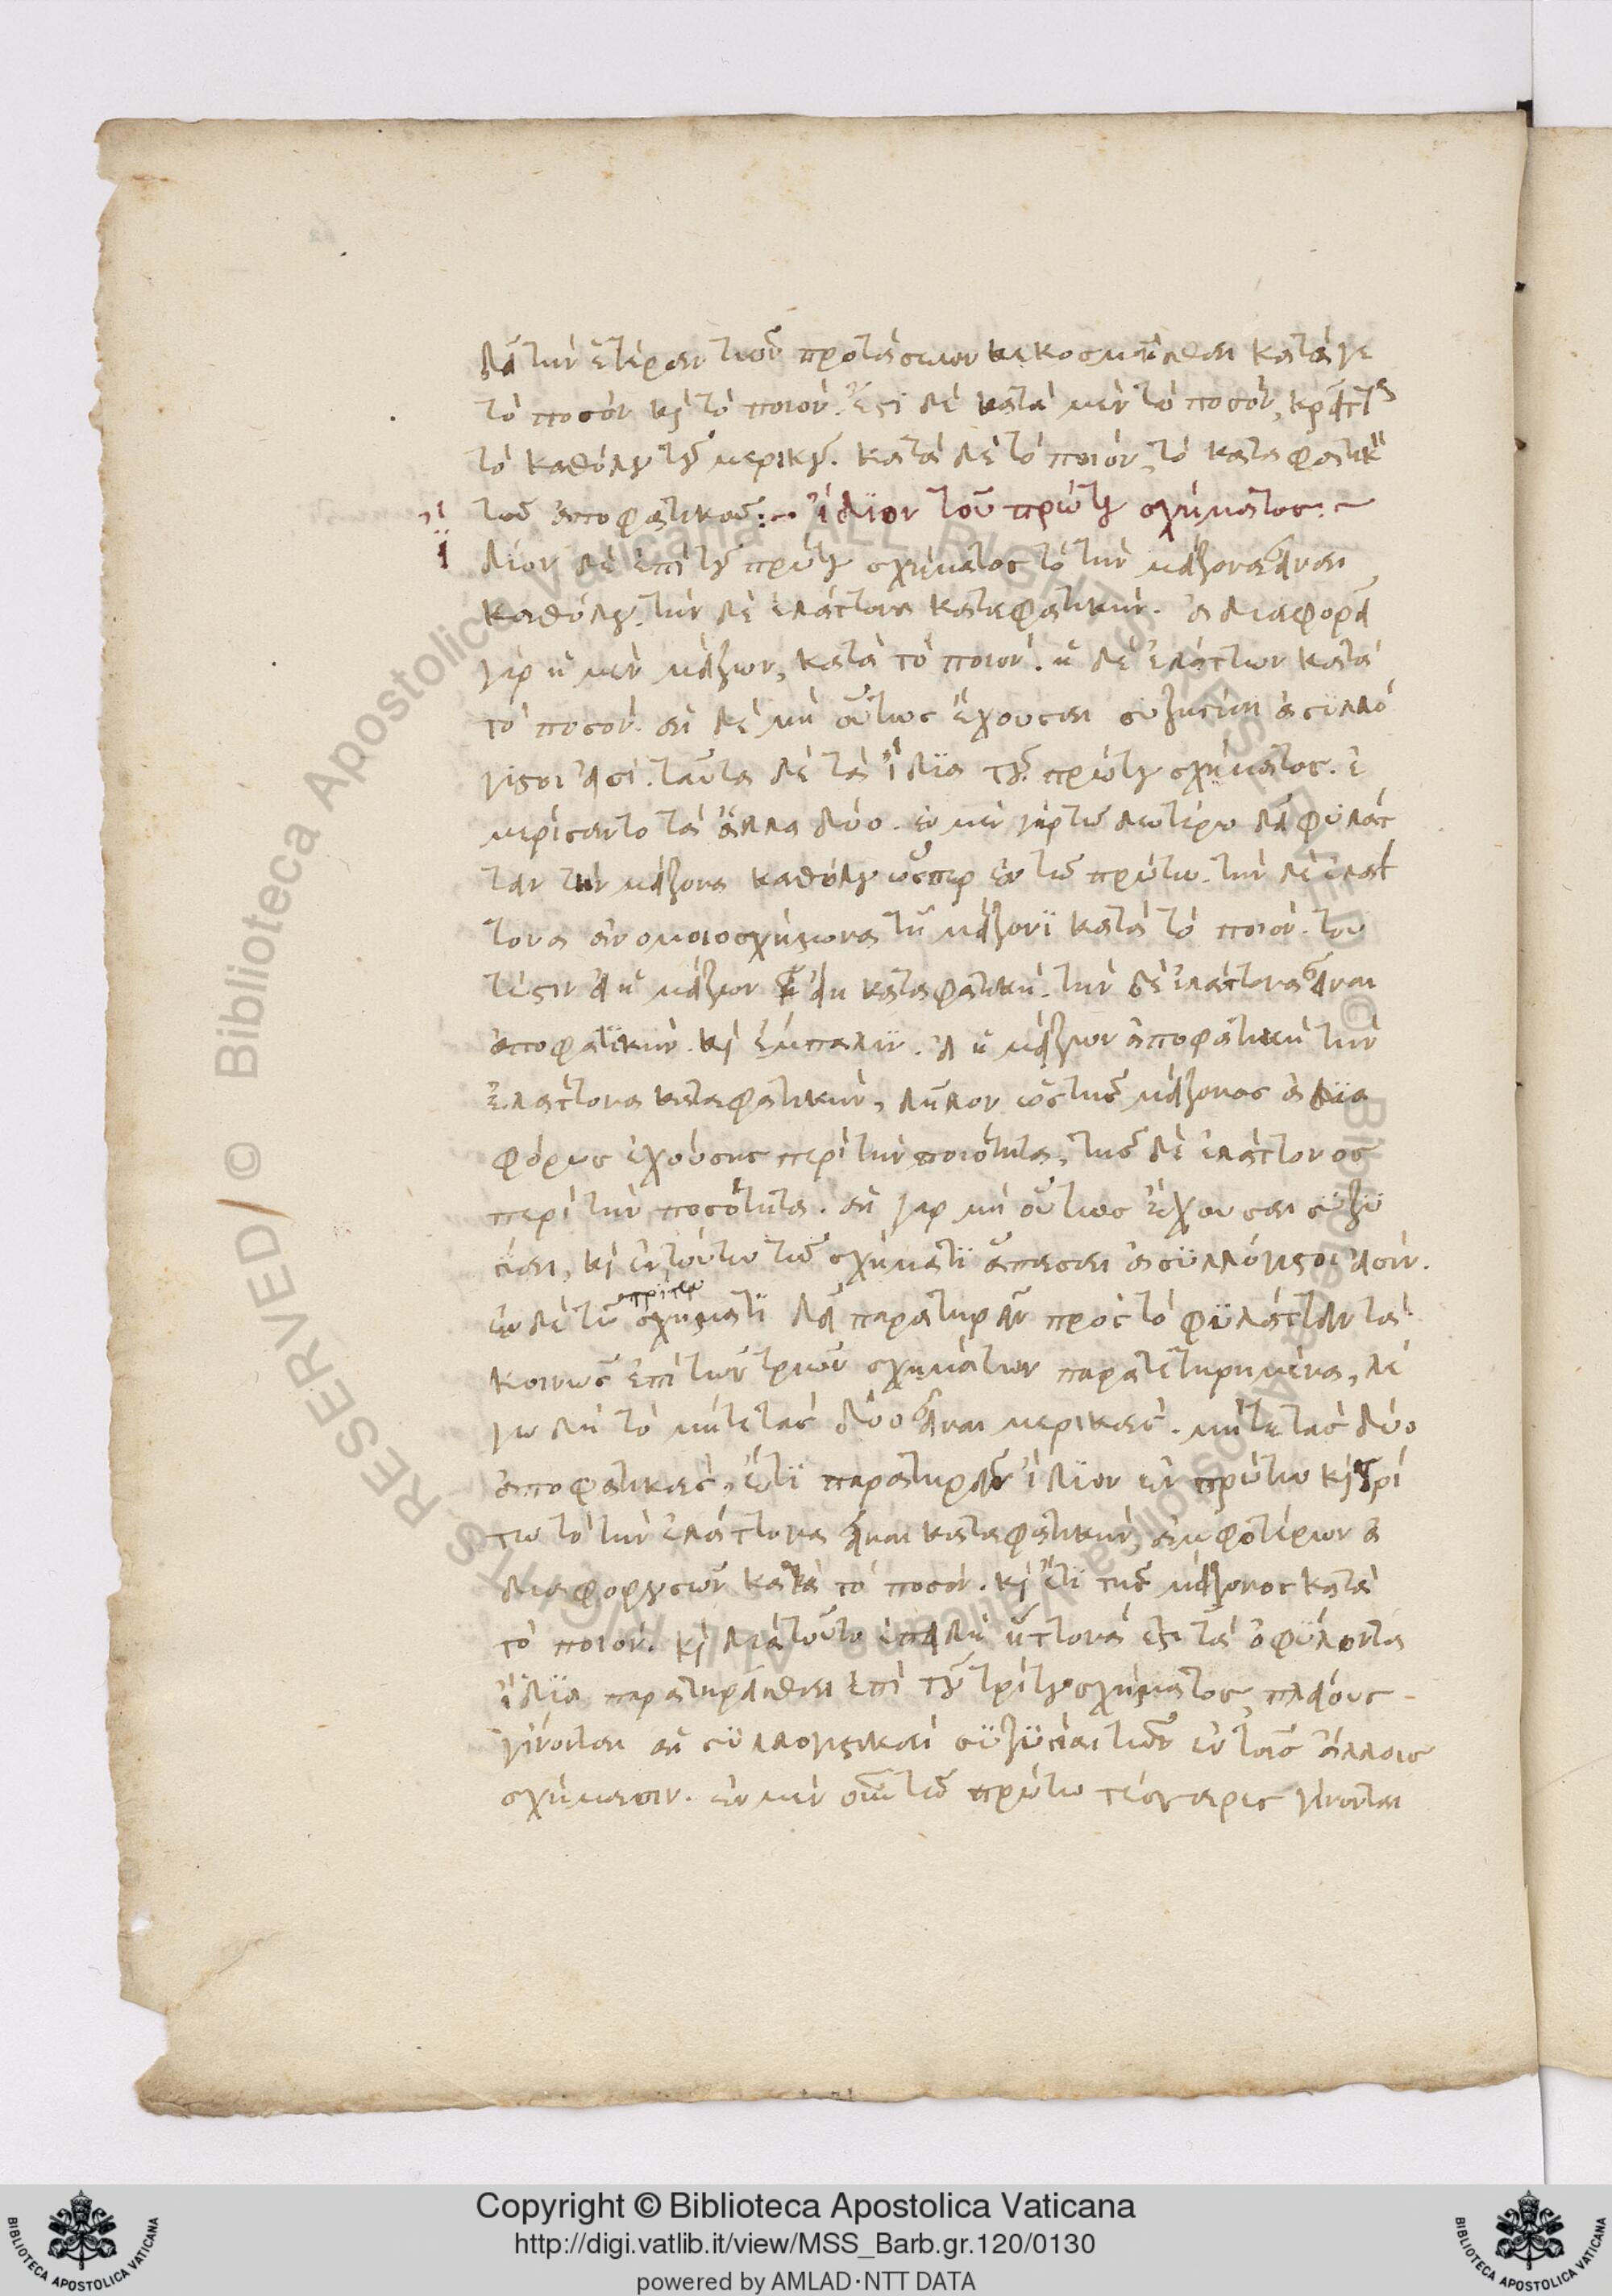 δεῖ τὴν ἑτέραν τῶν προτάσεων κεκοσμεῖσθαι κατά γε
τὸ ποσὸν καὶ τὸ ποιόν. ἔστι δὲ κατὰ μὲν τὸ ποσὸν, κρεῖττον
τὸ καθόλου τοῦ μερικοῦ. κατὰ δὲ τὸ ποιὸν, τὸ καταφατικὸν
τοῦ ἀποφατικοῦ :~ ἴδιον τοῦ πρώτου σχήματος :~
ἴδιον δὲ ἐπὶ τοῦ πρώτου σχήματος τὸ τὴν μείζονα εἶναι
καθόλου. τὴν δὲ ἐλάττονα καταφατικήν. ἀδιαφορεῖ
γὰρ ἡ μὲν μείζων, κατὰ τὸ ποιόν. ἡ δὲ ἐλάττων κατὰ
τὸ ποσόν. αἱ δὲ μὴ οὕτως ἔχουσαι συζυγίαι ἀσυλλό
γιστοι εἰσί. ταῦτα δὲ τὰ ἴδια τοῦ πρώτου σχήματος. ἐ
μερίσαντο τὰ ἄλλα δύο. ἐν μὲν γὰρ τῷ δευτέρῳ δεῖ φυλάτ
τειν τὴν μείζονα καθόλου ὥσπερ ἐν τῷ πρώτῳ. τὴν δὲ ἐλάτ
τονα ἀνομοιοσχήμονα τῇ μείζονι κατὰ τὸ ποιόν. του
τέστιν εἰ ἡ μείζων εἴη καταφατικὴ. τὴν δὲ ἐλάττονα εἶναι
ἀποφατικήν. καὶ ἔμπαλιν. εἰ ἡ μείζων ἀποφατικὴ τὴν
ἐλάττονα καταφατικήν, δῆλον ὡς τῆς μείζονος ἀδια
φόρως ἐχούσης περὶ τὴν ποιότητα, τῆς δὲ ἐλάττονος
περὶ τὴν ποσότητα. αἱ γὰρ μὴ οὕτως ἔχουσαι συζυ
γίαι, καὶ ἐν τούτῳ τῷ σχήματι ἅπασαι ἀσυλλόγιστοι εἰσίν.
ἐν δὲ τῷ τρίτῳ σχήματι δεῖ παρατηρεῖν πρὸς τὸ φυλάττειν τὰ
κοινῶς ἐπὶ τῶν τριῶν σχημάτων παρατετηρημένα, λέ
γω δὴ τὸ μήτε τὰς δύο εἶναι μερικάς. μήτε τὰς δύο
ἀποφατικάς, ἔτι παρατηρεῖν ἴδιον ἐν πρώτῳ καὶ τρί
τῳ τὸ τὴν ἐλάττονα εἶναι καταφατικήν, ἀμφοτέρων ἀ
διαφορουσῶν κατὰ τὸ ποσόν. καὶ ἔτι τῆς μείζονος κατὰ
τὸ ποιόν. καὶ διὰ τοῦτο ἐπειδὴ ἥττονά ἐστι τὰ ὀφείλοντα
ἰδίᾳ παρατηρεῖσθαι ἐπὶ τοῦ τρίτου σχήματος, πλείους
γίνονται αἱ συλλογιστικαὶ συζυγίαι τῶν ἐν τοῖς ἄλλοις
σχήμασιν. ἐν μὲν οὖν τῷ πρώτῳ τέσσαρες γίνονται
Copyright © Biblioteca Apostolica Vaticana
http://digi.vatlib.it/view/MSS_Barb.gr.120/0130
powered by AMLAD·NTT DATA